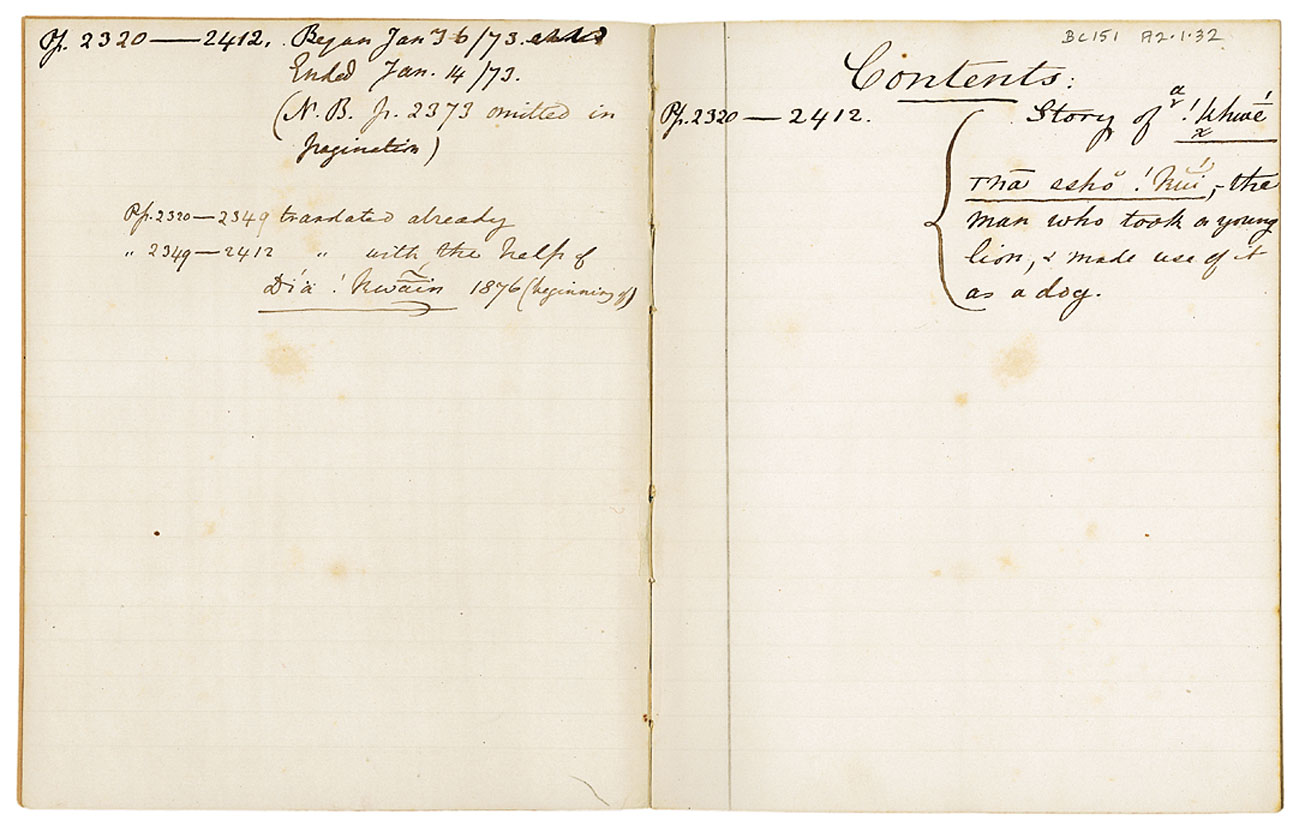 Pp. 2320 — 2412. Began Jan 6/73.
Ended Jan. 14/73.
(N. B. p. 2373 omitted in
pagination)
Pp. 2320 — 2349 translated already
„ 2349 — 2412 „ with the help of
Día ! kwãin 1876 (beginning of)
BC151 A2.1.32
Contents:
Pp. 2320 — 2412. Story of
the
man who took a young
lion, & made use of it
as a dog.